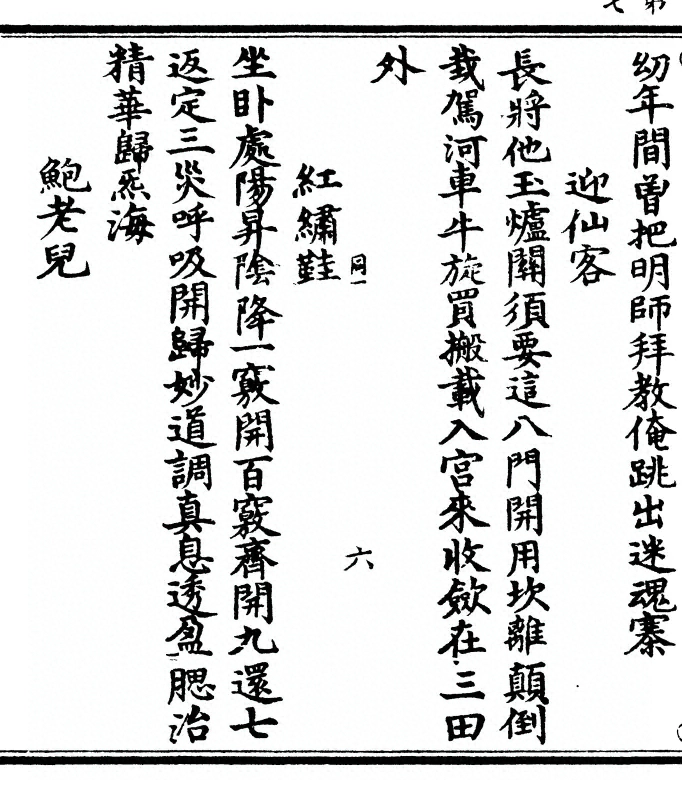 幻年間曽把明師拜教俺跳出迷魂寨
迎仙客
長將他玉爐關須要這八門開用坎離顛倒
栽駕河車牛旋買搬載入宫來收斂在三田
外
同一
六
紅繡鞋
坐卧處陽昇陰降一竅開百竅齊開九還七
返定三災呼吸開歸妙道調真息透盈腮治
精華歸炁海
鮑老兒